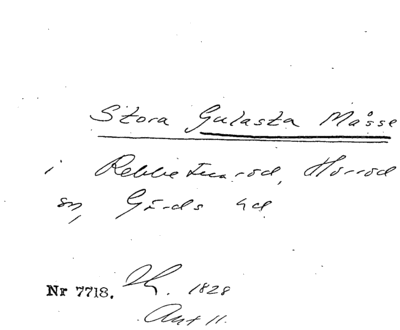 Stora Gulasta Måsse
i Rebbetuaröd, Hörröd
sn, Gärds hd
Nr 7718. 1828
Akt 11.